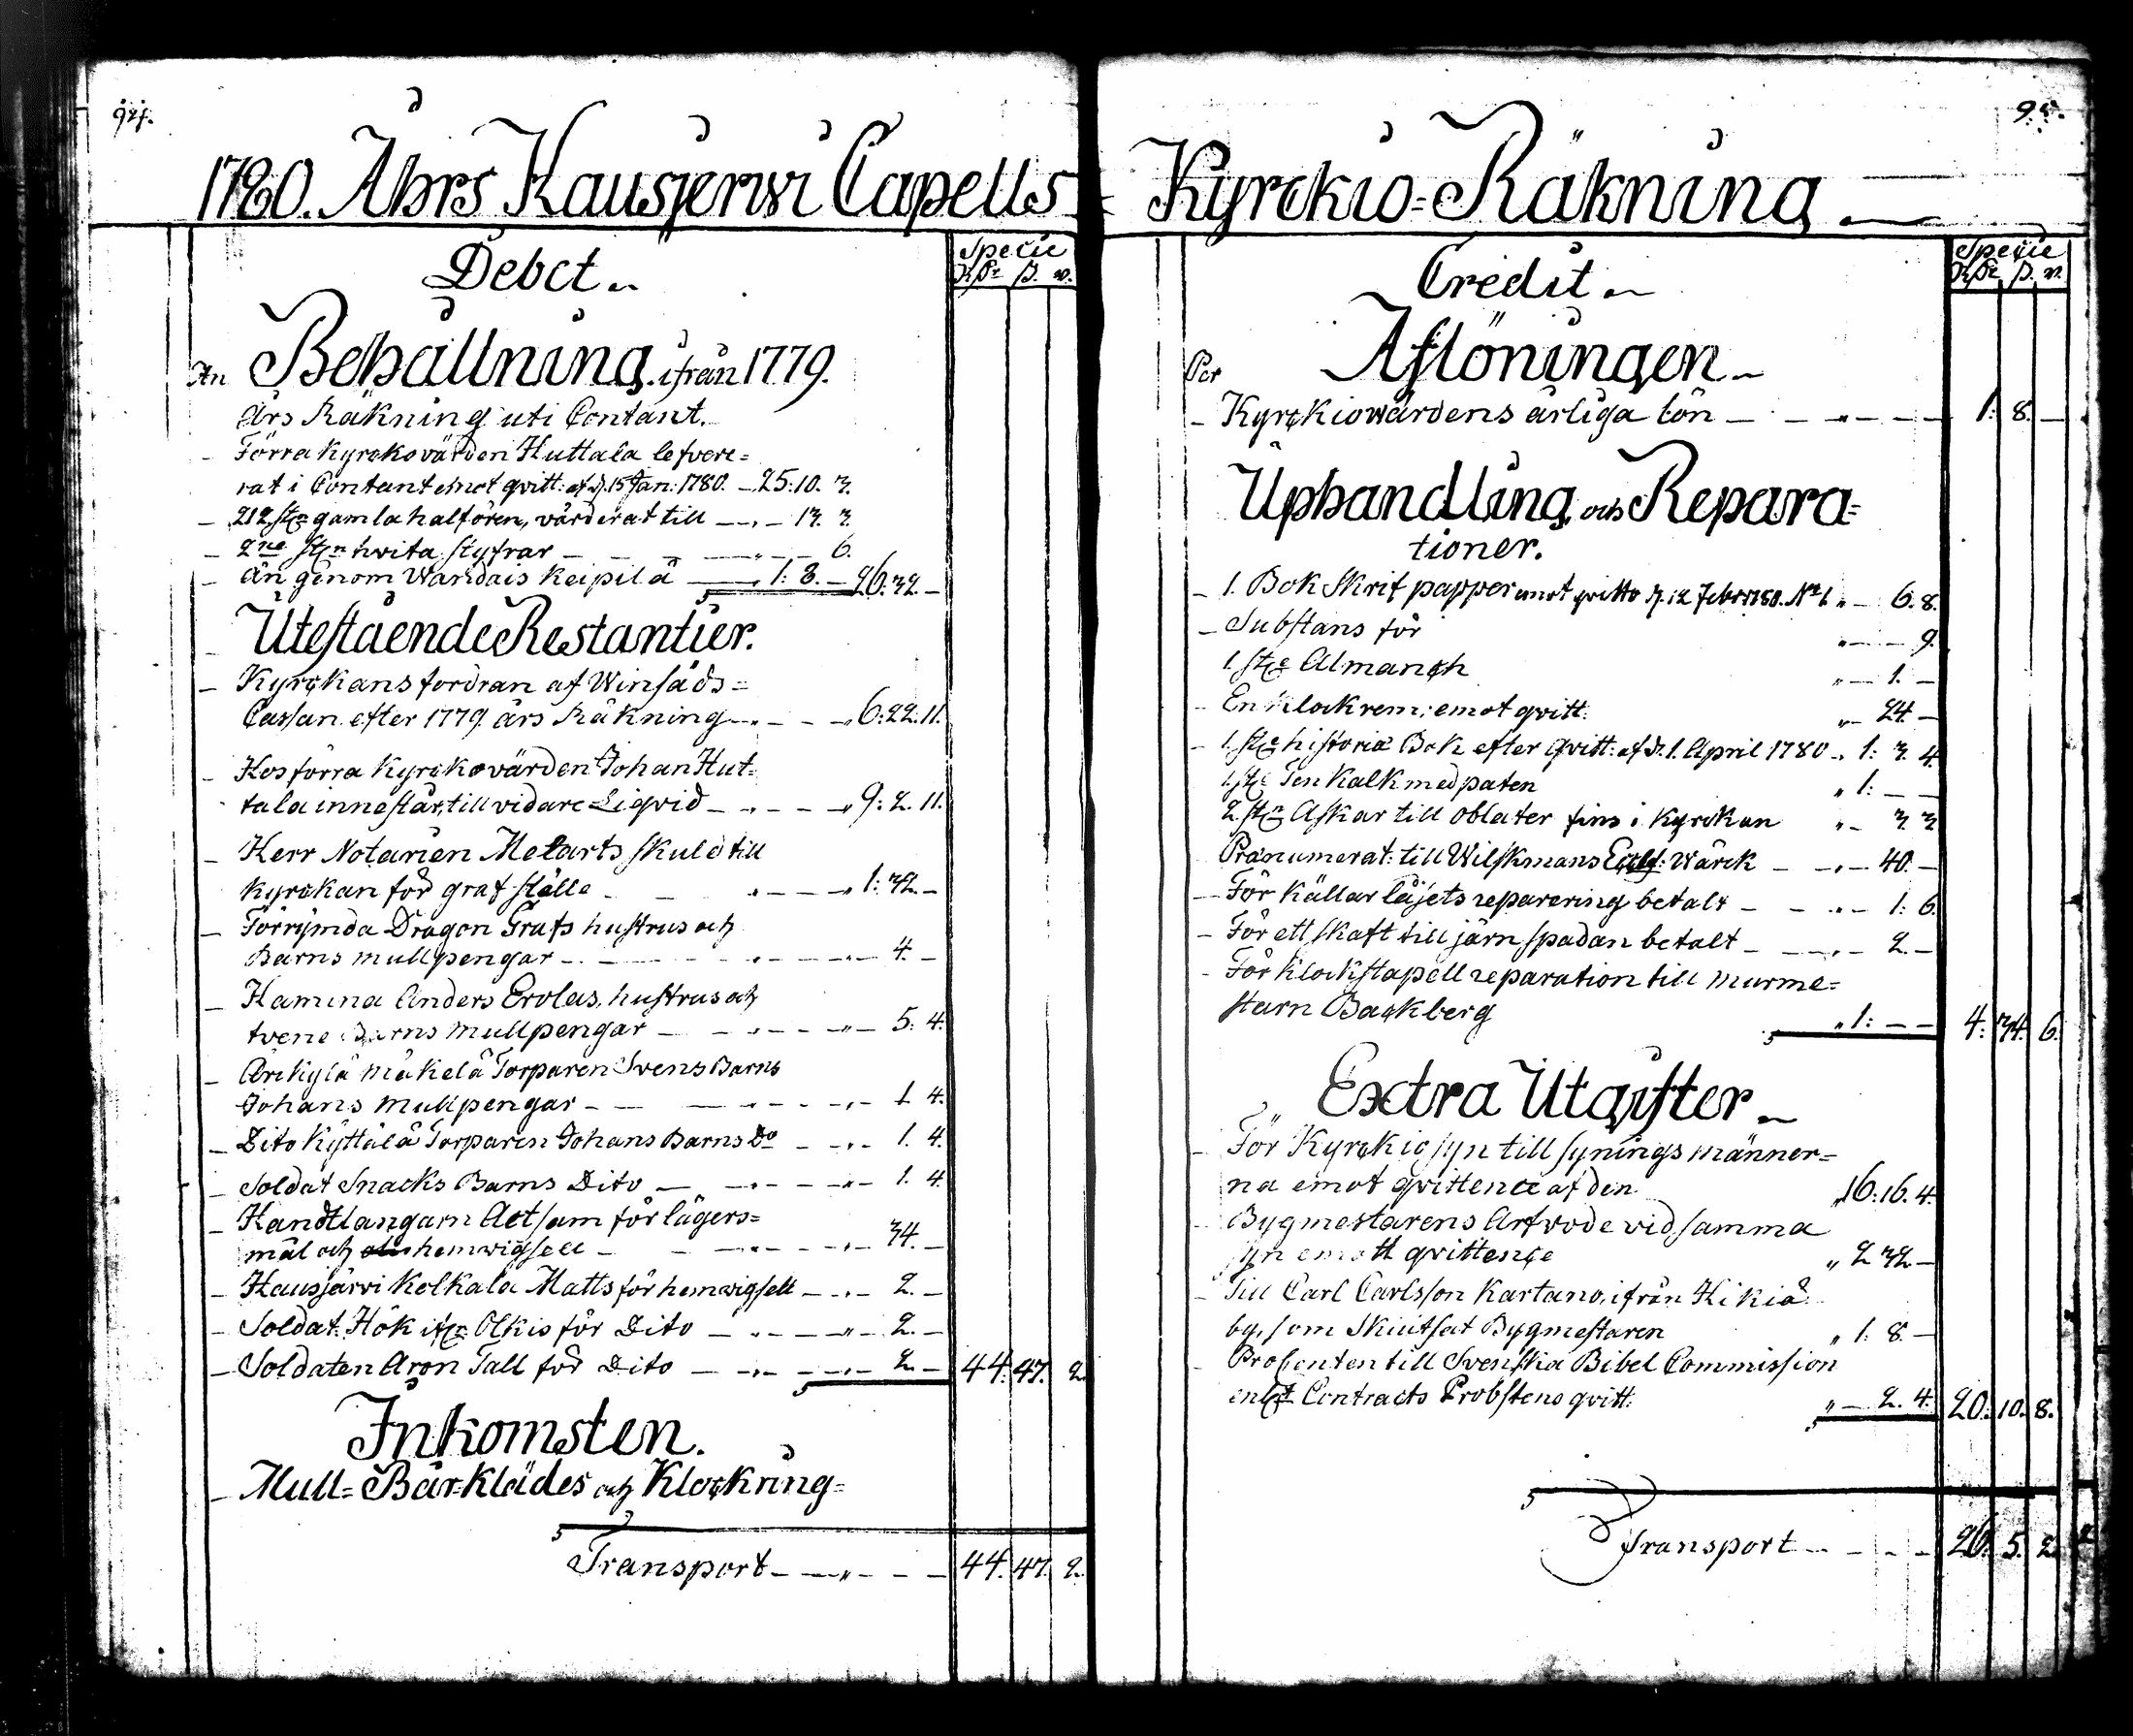 1780. Åhrs Hausjerwi Capells
Debet
Specie
Rdr ß. rst.
An Behållning ifrån 1779.
års Räkning uti Contant.
Förra Kyrckovärden Huttala lefvere=
rat i Contant emot qvitt: af d. 15 Jan: 1780. 25: 10. 3.
212 st. gamla halfören, värderat till 13. 3.
2ne st. hvita styfrar 6.
Än genom Wardais Keipilä 1: 8. 26: 32.
Utestående Restantier.
Kyrckans fordran af Winsäds=
Cassan efter 1779 års Räkning 6: 22: 11.
Hos förra Kyrckovärden Johan Hut=
tala innestår, till vidare Liqvid 9: 2. 11.
Herr Notarien Melarts skuld till
Kyrckan för graf ställe 1: 32.
Förrymda Dragon Grafs hustrus och
Barns mullpengar 4.
Hamina Anders Erolas, hustrus och
tvene Barns mullpengar 5: 4.
Arikylä Mäkelä Torparen Svens Barns
Johans Mullpengar 1. 4.
Dito Kyttälä Torparen Johans Barns Do 1. 4.
Soldat Snacks Barns Dito 1. 4.
Handtlangarn Actsam för lägers=
mål och hemwigsell 34.
Hausjärvi Kolkala Matts för hemwigsell 2.
Soldat Hök Olkis för Dito 2.
Soldaten Aron Tall för Dito 2. 44: 47. 2.
Inkomsten.
Mull= Bår=Klädes och Klockring=
Transport 44. 47. 2.
95.
Kyrckio=Räkning
Credit
Specie
Rdr ß. rst.
Per Aflöningen
Kyrckiowärdens årliga lön 1: 8.
Uphandling och Repara=
tioner.
1. Bok Skrifpapper emot qvitto d. 12 Febr: 1780. No 1. 6. 8.
Substans för 9.
1. st. Almanch 1.
En klockrem: emot qvitt: 24.
1. st. historiæ Bok efter qvitt: af d. 1. April 1780 1: 3. 4.
1. st. Ten Kalk med paten 1:
2. st. Askar till oblater fins i Kyrckan 3. 3.
Prænumerat: till Wilskmans Eccles: Wärck 40.
För Källar läjets reparering betalt 1: 6.
För ett skaft till järn spadan betalt 2.
För klockstapell reparation till murme=
starn Backberg 1: 4: 34. 6.
Extra Utgifter
För Kyrckio syn till synings männer=
na emot qvittence af den 16: 16. 4.
Bygmestarens Arfwode vid samma
syn emott qvittence 2. 32.
Till Carl Carlsson Kartano, ifrån Hikiä
by, som skiutsat Bygmestaren 1: 8.
Procenten till Svenska Bibel Commission
enligt Contracts Probstens qvitt: 2. 4. 20: 10. 8.
Transport 26. 5. 2.